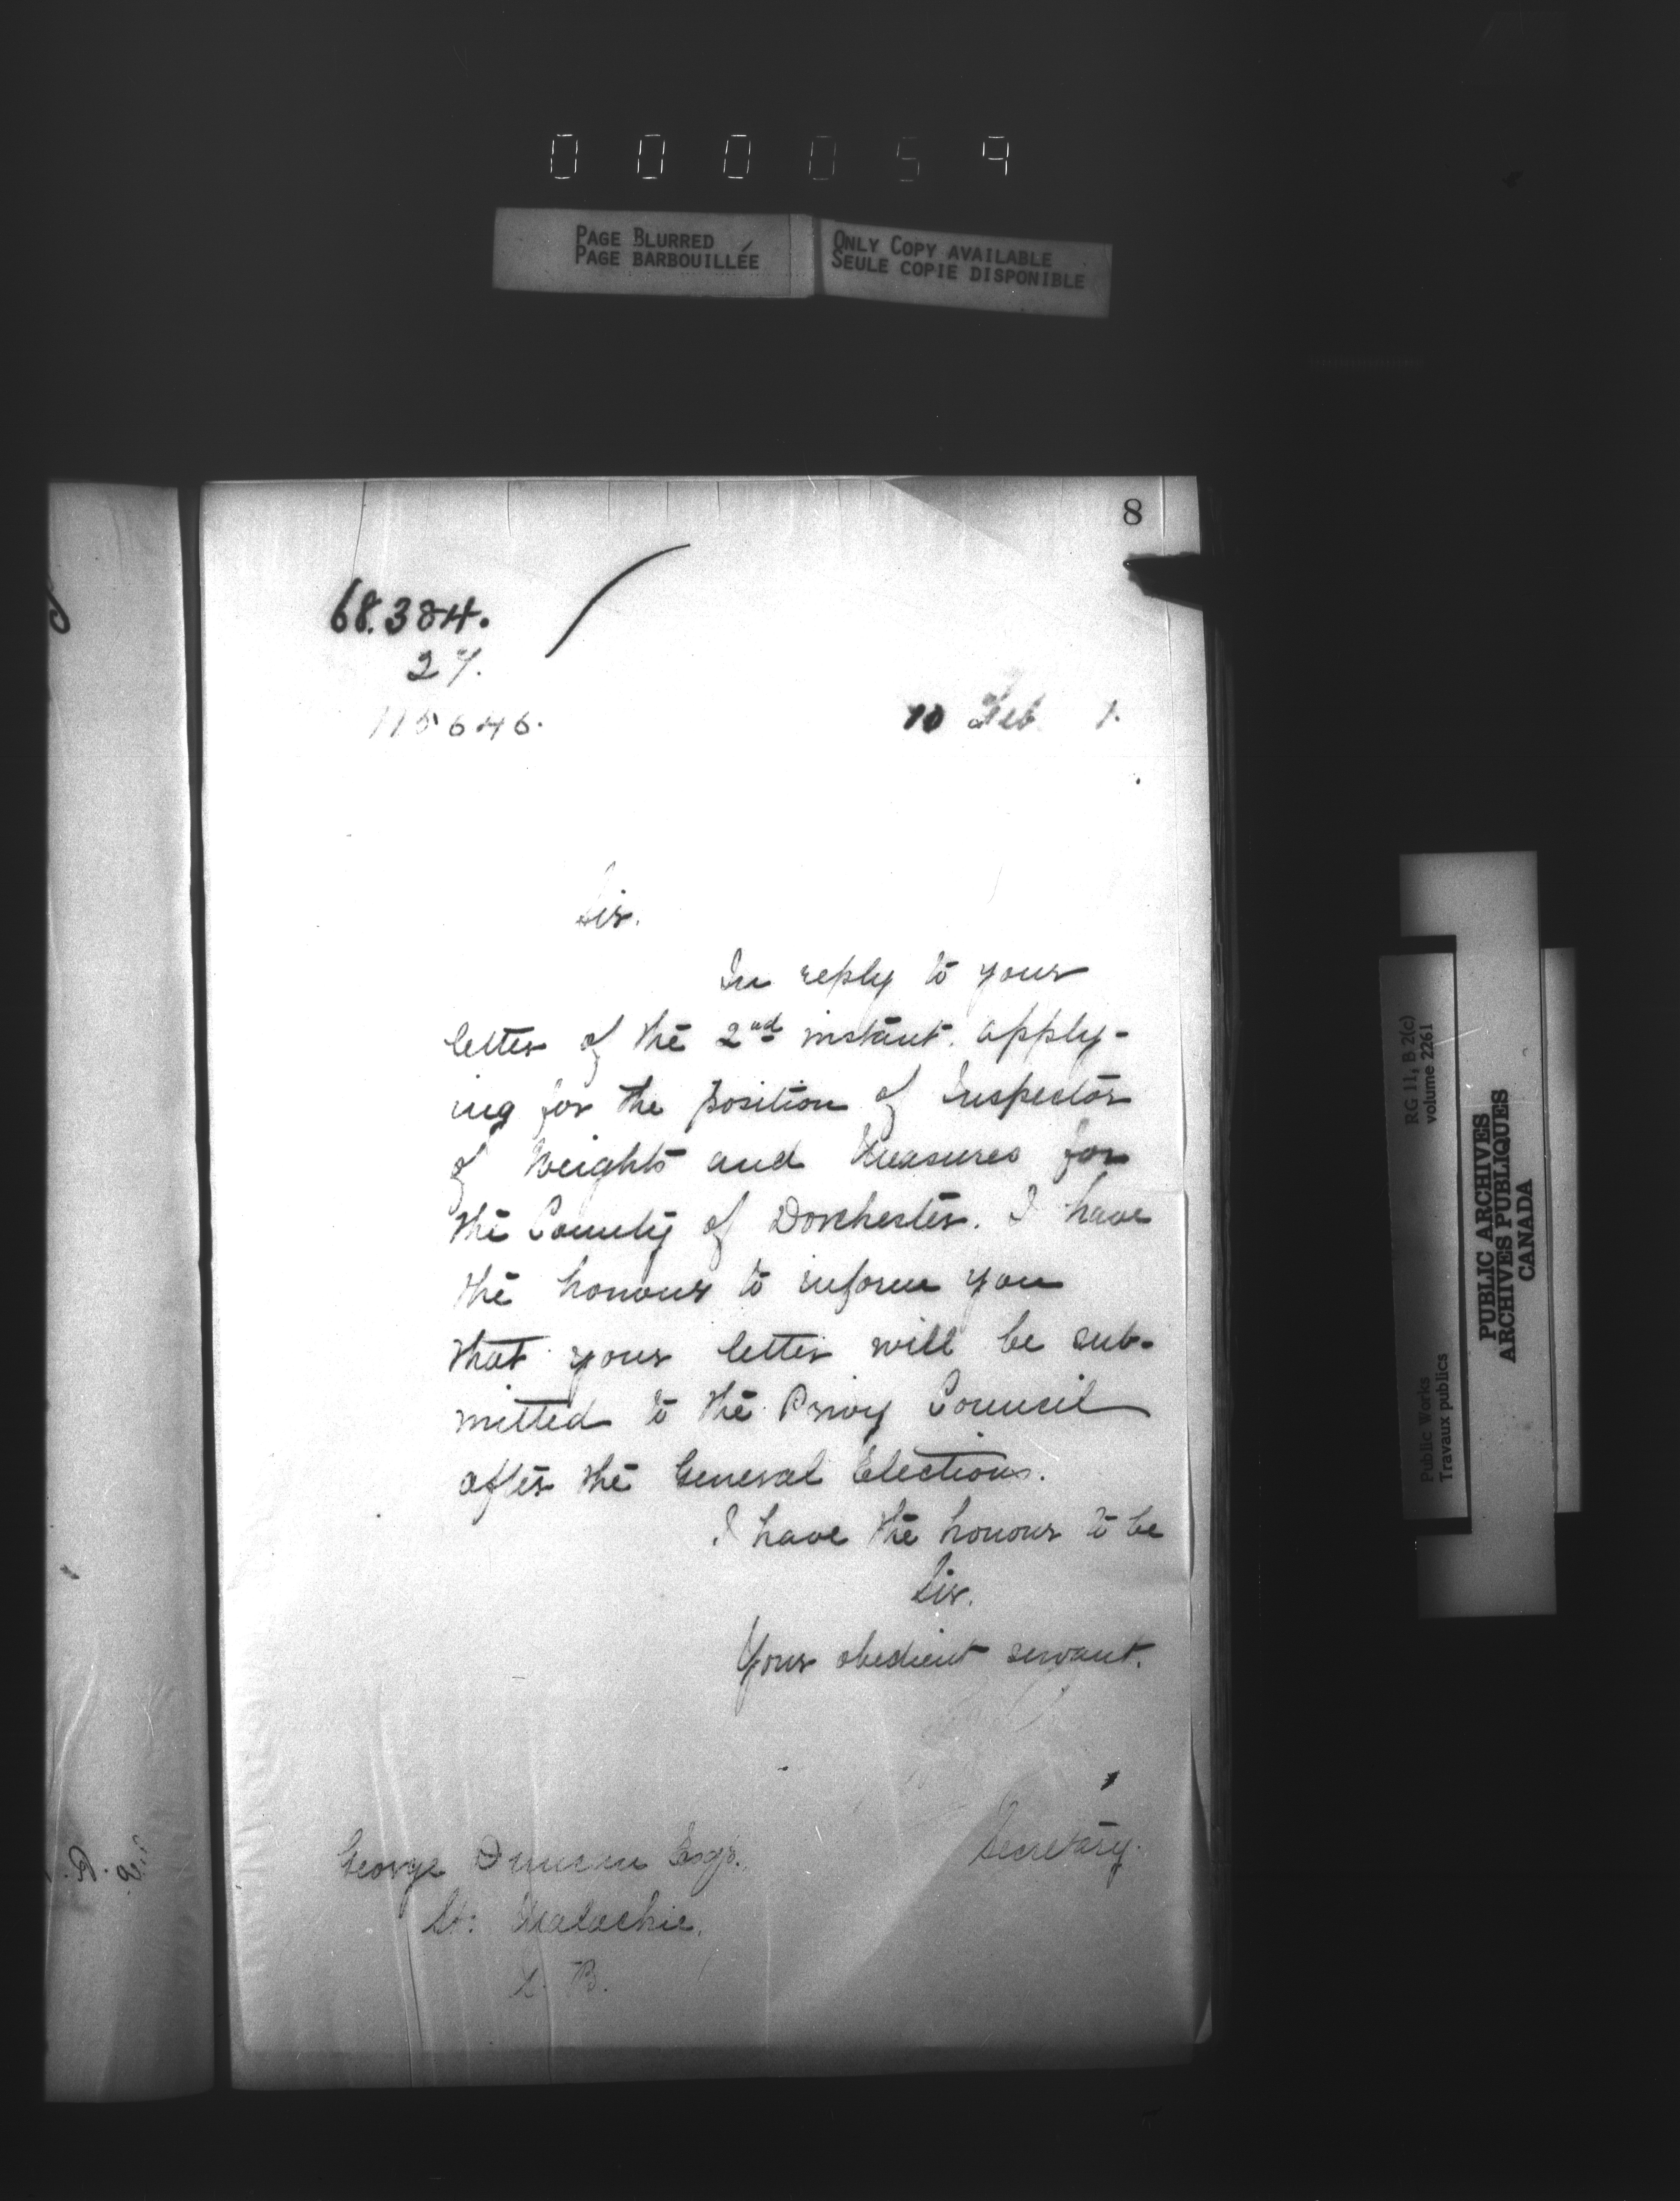 000059
PAGE BLURRED
PAGE BARBOUILLÉE
ONLY COPY AVAILABLE
SEULE COPIE DISPONIBLE
8
68.384.
27.
115646.
10 Feb 7.
Sir.
In reply to your
letter of the 2nd instant. apply-
ing for the position of Inspector
of Weights and Measures for
the County of Dorchester. I have
the honour to inform you
that your letter will be sub-
mitted to the Privy Council
after the General Elections.
I have the honour to be
Sir.
Your obedient servant.
Secretary.
George Duncan Esqr.
St: Malachie.
P.B.
RG 11, B 2(c)
volume 2261
Public Works
Travaux publics
PUBLIC ARCHIVES
ARCHIVES PUBLIQUES
CANADA